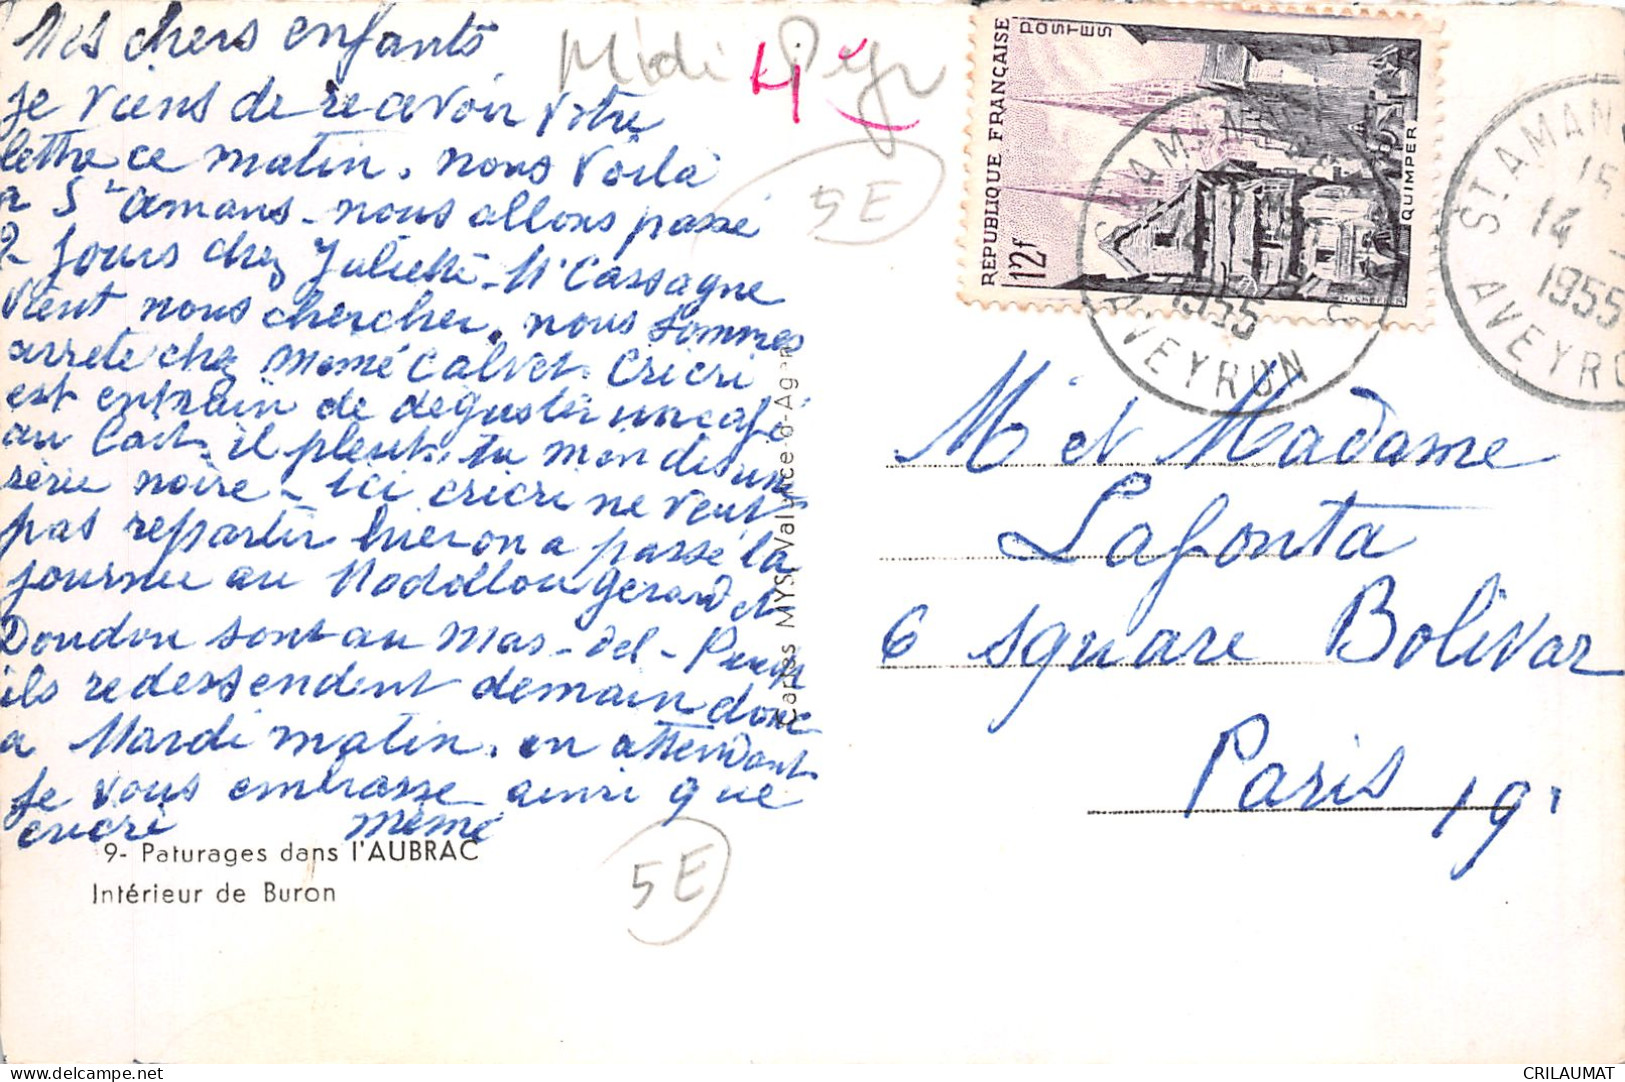 Mes chers enfants
je viens de recevoir votre
lettre ce matin. nous voila
a St amans - nous allons passé
2 jours chez Juliette - Mr Cassagne
vient nous chercher. nous sommes
arrete chez Mémé Calvet. Cricri
est entrain de deguster un café
au lait. il pleut.
serie noire - ici cricri ne veut
pas repartir hier on a passé la
journee au gerard et
Doudou sont au Mas-del-Puech
ils redessendent demain donc
a Mardi matin. en attendant
je vous embrasse ainsi que
cricri mémé
9- Paturages dans l'AUBRAC
Intérieur de Buron
Midi Pyr
4€
5E
5E
Cartes MYS Valence-d-Agen
REPUBLIQUE FRANÇAISE
POSTES
12f
QUIMPER
ST AMAN
AVEYRON
1955
ST AMAN
15
14
1955
AVEYRO
Mr et Madame
Lafonta
6 square Bolivar
Paris 19
CRILAUMAT
delcampe.net